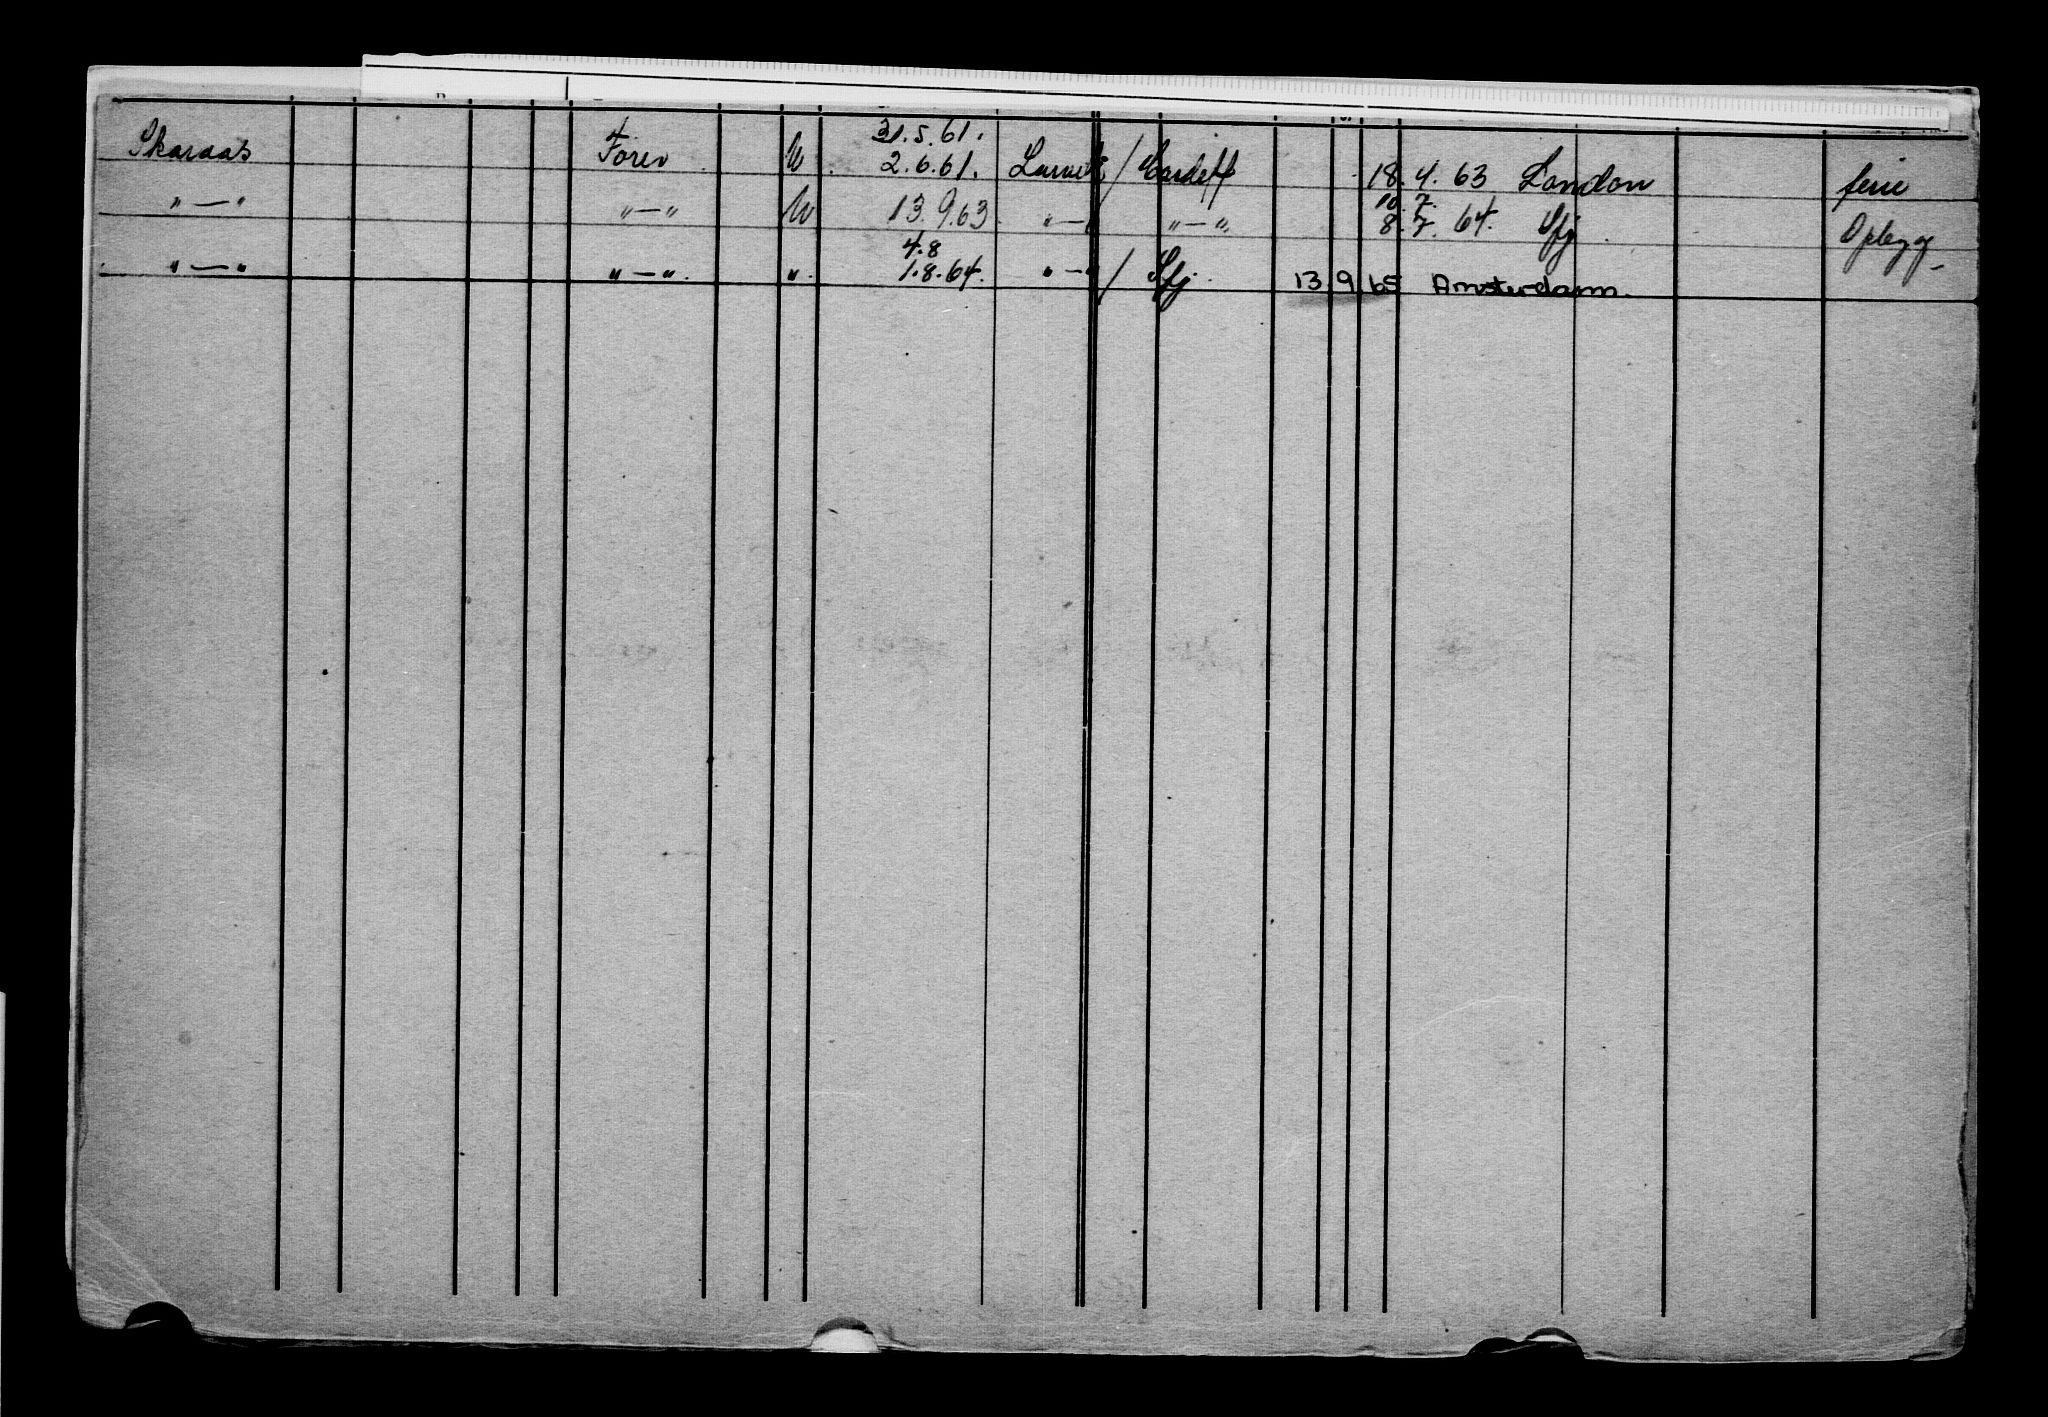 31.5.61.
Skaraas Fører 2.6.61. Larvik / Cardiff 18.4.63 London ferie
10.7.
" — " " — " 13.9.63 " — " " — " 8.7.64. Sfj Oplegg
4.8
" — " " — " " 1.8.64. " — " / Sfj 13 9 65 Amsterdam.